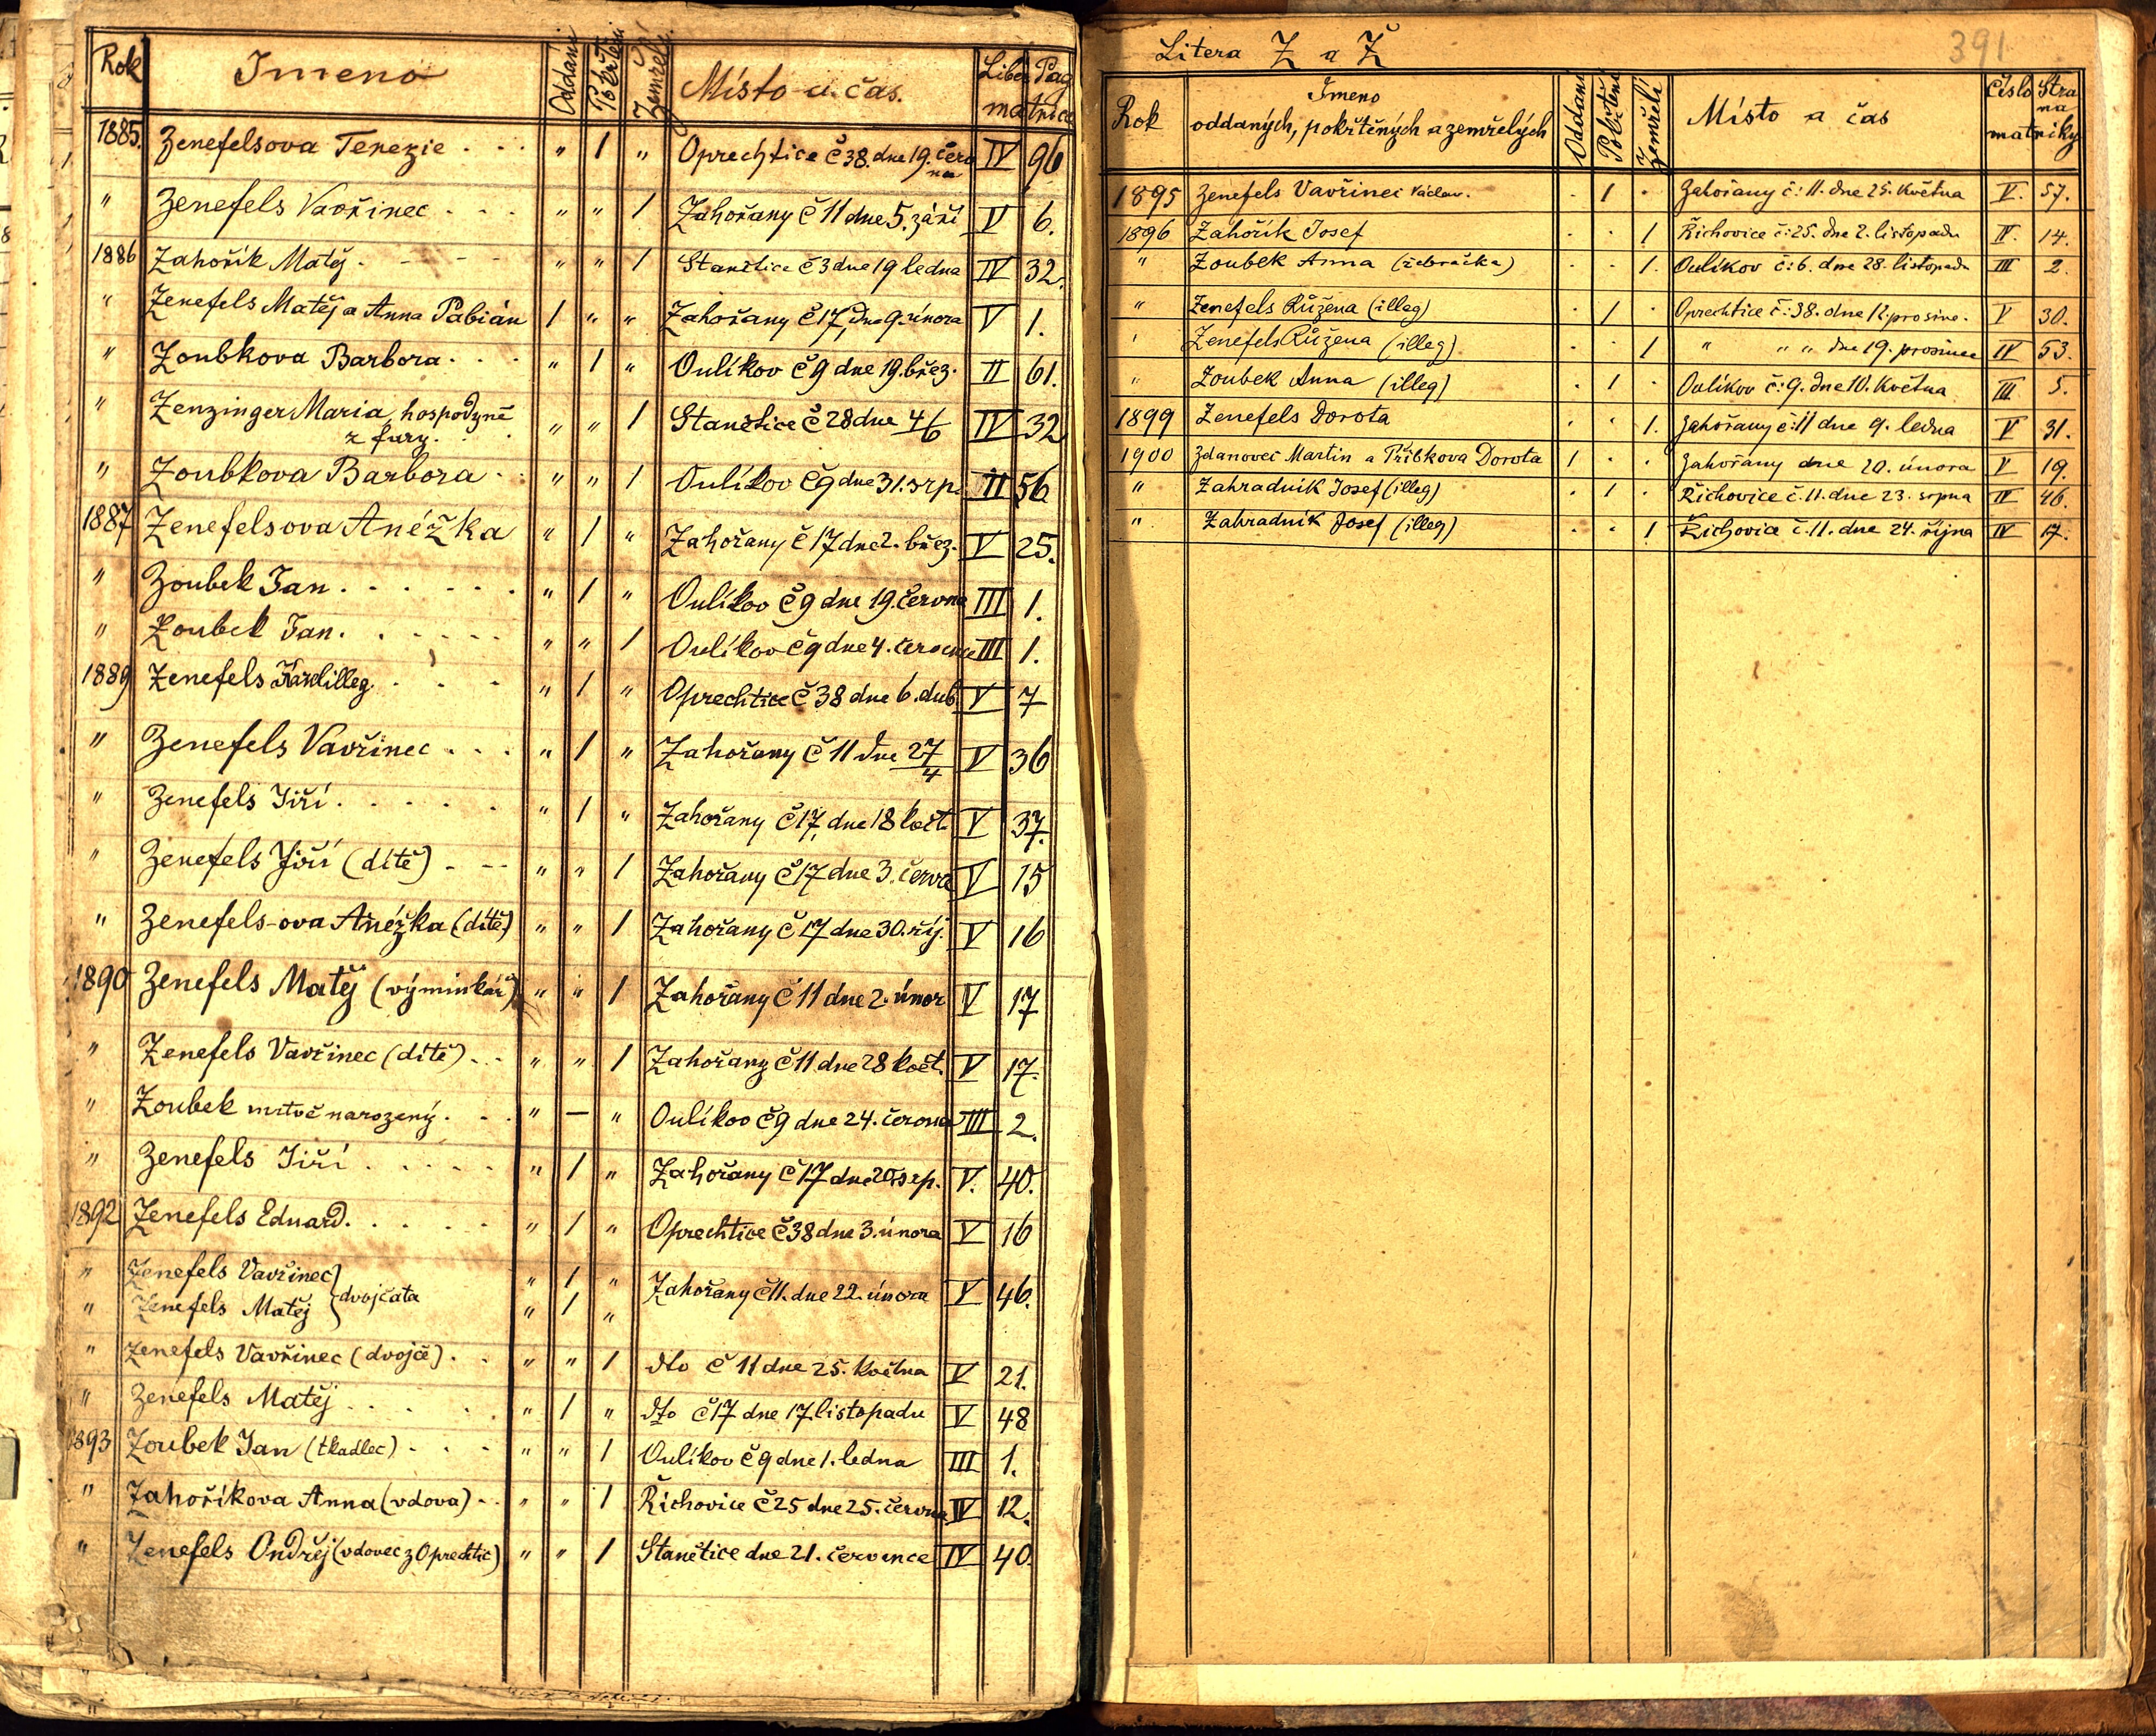 Rok Jmeno Oddáni Pokřtěni Zemřelí Místo a čas. Liber Pag
matrice
1885. Zenefelsova Terezie . . . " 1 " Oprechtice č 38. dne 19. června IV 96
" Zenefels Vavřinec . . . " " 1 Zahořany č 11 dne 5. září V 6.
1886 Zahořík Matěj . - - - - " " 1 Stanětice č 3 dne 19 ledna IV 32.
" Zenefels Matěj a Anna Pabián 1 " " Zahořany č 17, dne 9. února V 1.
" Zoubkova Barbora . . . " 1 " Oulíkov č 9 dne 19. břez. II 61.
" Zenzinger Maria, hospodyně
z fary. . . " " 1 Stanětice č 28 dne 4/6 IV 32
" Zoubkova Barbora - . " " 1 Oulíkov č 9 dne 31. srp. II 56
1887 Zenefelsova Anéžka " 1 " Zahořany č 17 dne 2. břez. V 25.
" Zoubek Jan . . . . . . " 1 " Oulíkov č 9 dne 19. června III 1.
" Zoubek Jan. . . . . . " " 1 Oulíkov č 9 dne 4. července III 1.
1889 Zenefels Karel illeg. . . . " 1 " Oprechtice č 38 dne 6. dub. V 7
" Zenefels Vavřinec . . . " 1 " Zahořany č 11 dne 27/4 V 36
" Zenefels Jiří . . . . . " 1 " Zahořany č 17, dne 18 květ. V 37.
" Zenefels Jiří (dítě) . - - " " 1 Zahořany č 17 dne 3. červa V 15
" Zenefels-ova Anéžka (dítě) " " 1 Zahořany č 17 dne 30. říj. V 16
1890 Zenefels Matěj (výminkář) " " 1 Zahořany č 11 dne 2. únor V 17
" Zenefels Vavřinec (dítě) . . . " " 1 Zahořany č 11 dne 28 květ. V 17.
" Zoubek mrtvě narozený . . . " — " Oulíkov č 9 dne 24. června III 2.
" Zenefels Jiří . . . . . " 1 " Zahořany č 17 dne 20 srp. V. 40.
1892 Zenefels Eduard. . . . . . " 1 " Oprechtice č 38 dne 3. února V 16
" Zenefels Vavřinec } dvojčata " 1 " Zahořany č 11. dne 22. února V 46.
" Zenefels Matěj " 1 "
" Zenefels Vavřinec (dvojče) . . " " 1 dto č 11 dne 25. května V 21.
" Zenefels Matěj . . . . . " 1 " dto č 17 dne 17 listopadu V 48
1893 Zoubek Jan (tkadlec) . . . . " " 1 Oulíkov č 9 dne 1. ledna III 1.
" Zahoříkova Anna (vdova) . . " " 1 Řichovice č 25 dne 25. června IV 12.
" Zenefels Ondřej (vdovec z Oprechtic) " " 1 Stanětice dne 21. července IV 40.
Litera Z a Ž
391
Rok Jmeno
oddaných, pokřtěných a zemřelých Oddáni Pokřtěni Zemřelí Místo a čas Číslo Strana
matriky
1895 Zenefels Vavřinec Václav. . 1 . Zahořany č: 11. dne 25. května V. 57.
1896 Zahořík Josef . . 1 Řichovice č: 25. dne 2. listopadu IV. 14.
" Zoubek Anna (žebračka) . . 1. Oulíkov č: 6. dne 28. listopadu III 2.
" Zenefels Růžena (illeg) . 1 . Oprechtice č: 38. dne 12. prosinc. V 30.
" Zenefels Růžena (illeg) . . 1 " " " dne 19. prosince IV 53.
" Zoubek Anna (illeg) . 1 . Oulíkov č: 9. dne 10. května III 5.
1899 Zenefels Dorota . . 1. Zahořany č: 11 dne 9. ledna V 31.
1900 Zdanovec Martin a Přibkova Dorota 1 . . Zahořany dne 20. února V 19.
" Zahradník Josef (illeg) . 1 . Řichovice č. 11. dne 23. srpna IV 46.
" Zahradník Josef (illeg) . . 1 Řichovice č. 11. dne 24. října IV 17.